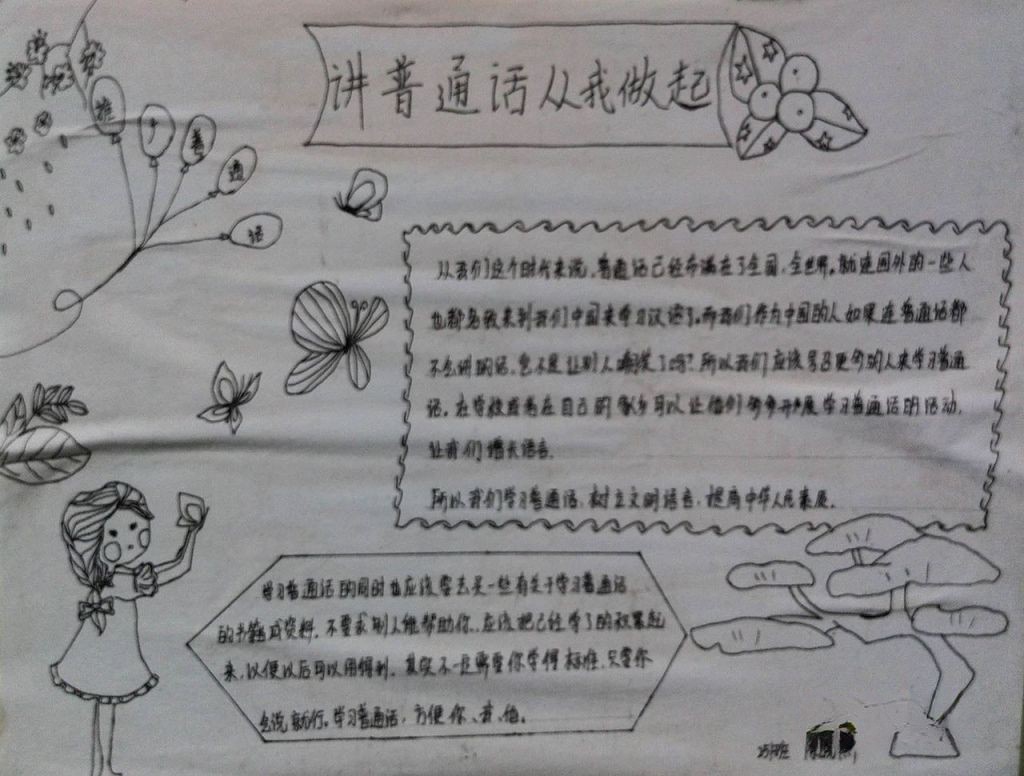 讲普通话从我做起
推
广
普
通
话
从我们这个时代来说,普通话已经布满在了全国,全世界,就连国外的一些人
也都会我来到我们中国来学习汉语了,而我们作为中国的人如果连普通话都
不会讲的话,岂不是让别人嘲笑了吗?所以我们应该号召更多的人来学习普通
话,在学校或者在自己的家乡可以让他们多多开展学习普通话的活动,
让我们增长语言。
所以我们学习普通话,树立文明语言,提高中华人民素质。
学习普通话的同时也应该要去买一些有关于学习普通话
的书籍或资料,不要求别人能帮助你,应该把已经学了的积累起
来,以便以后可以用得到。其实不一定需要你学得标准,只要你
会说就行。学习普通话,方便你、我、他。